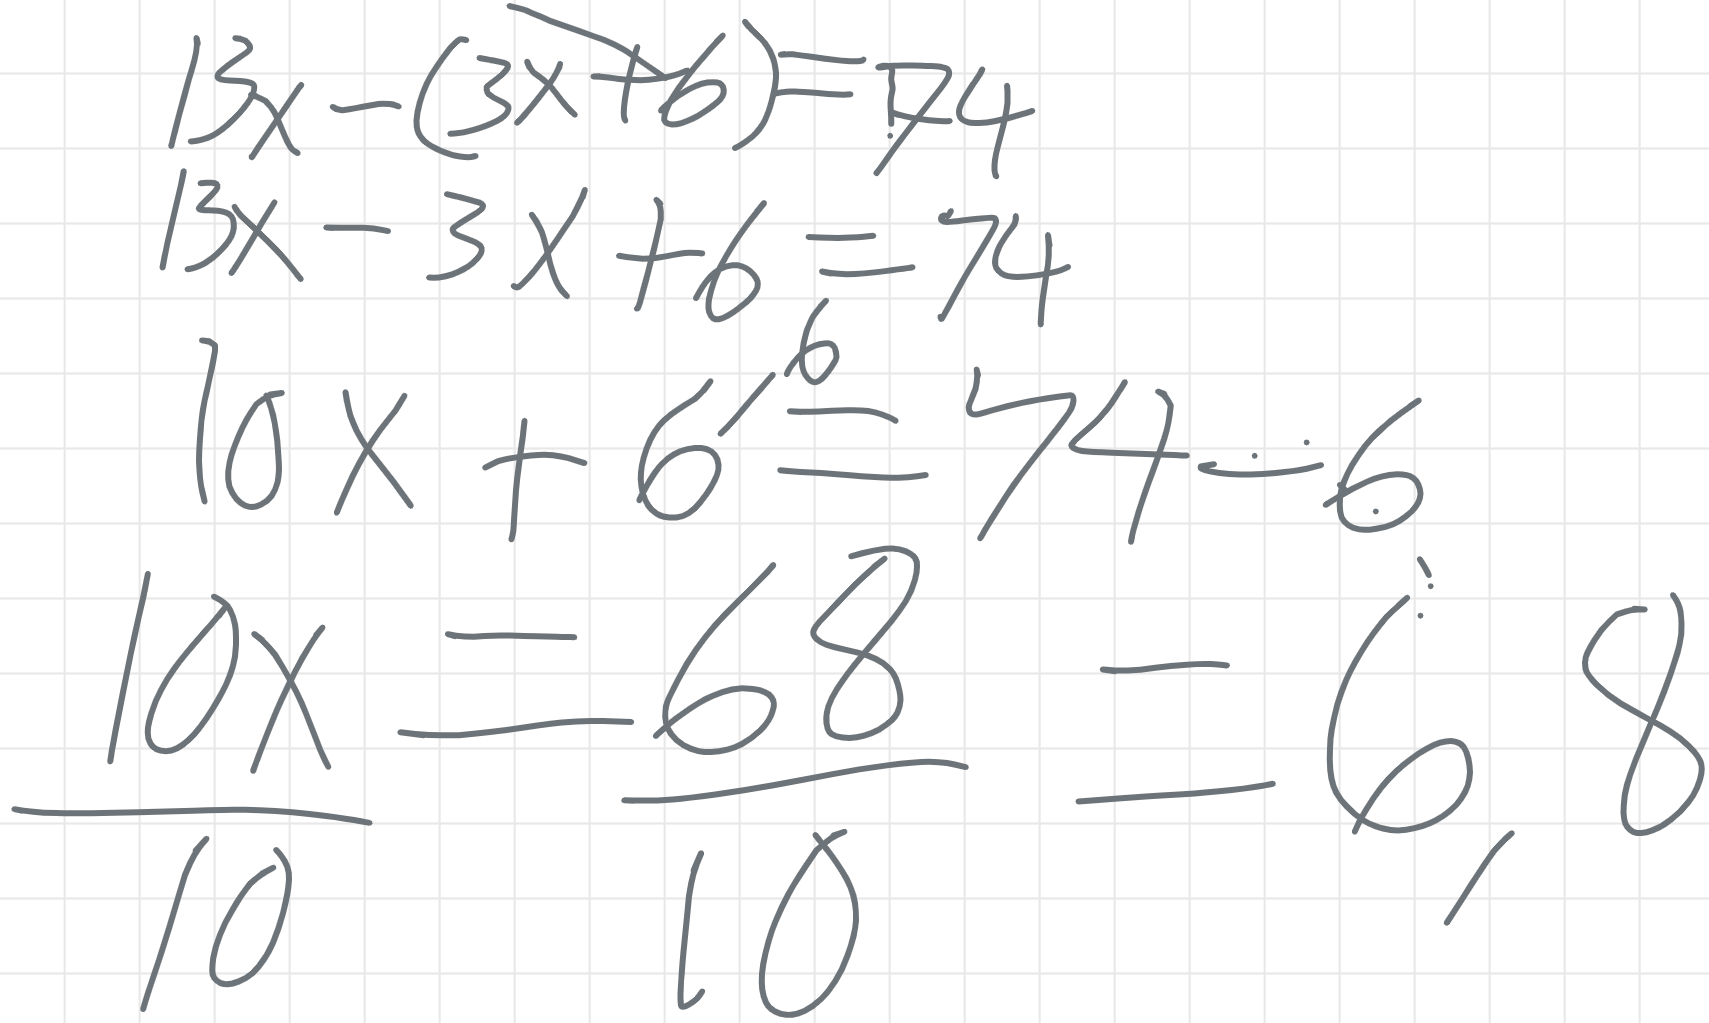 13x - (3x + 6) = 74
13x - 3x + 6 = 74
10x + 6 - 6 = 74 - 6
10x/10 = 68/10 = 6,8